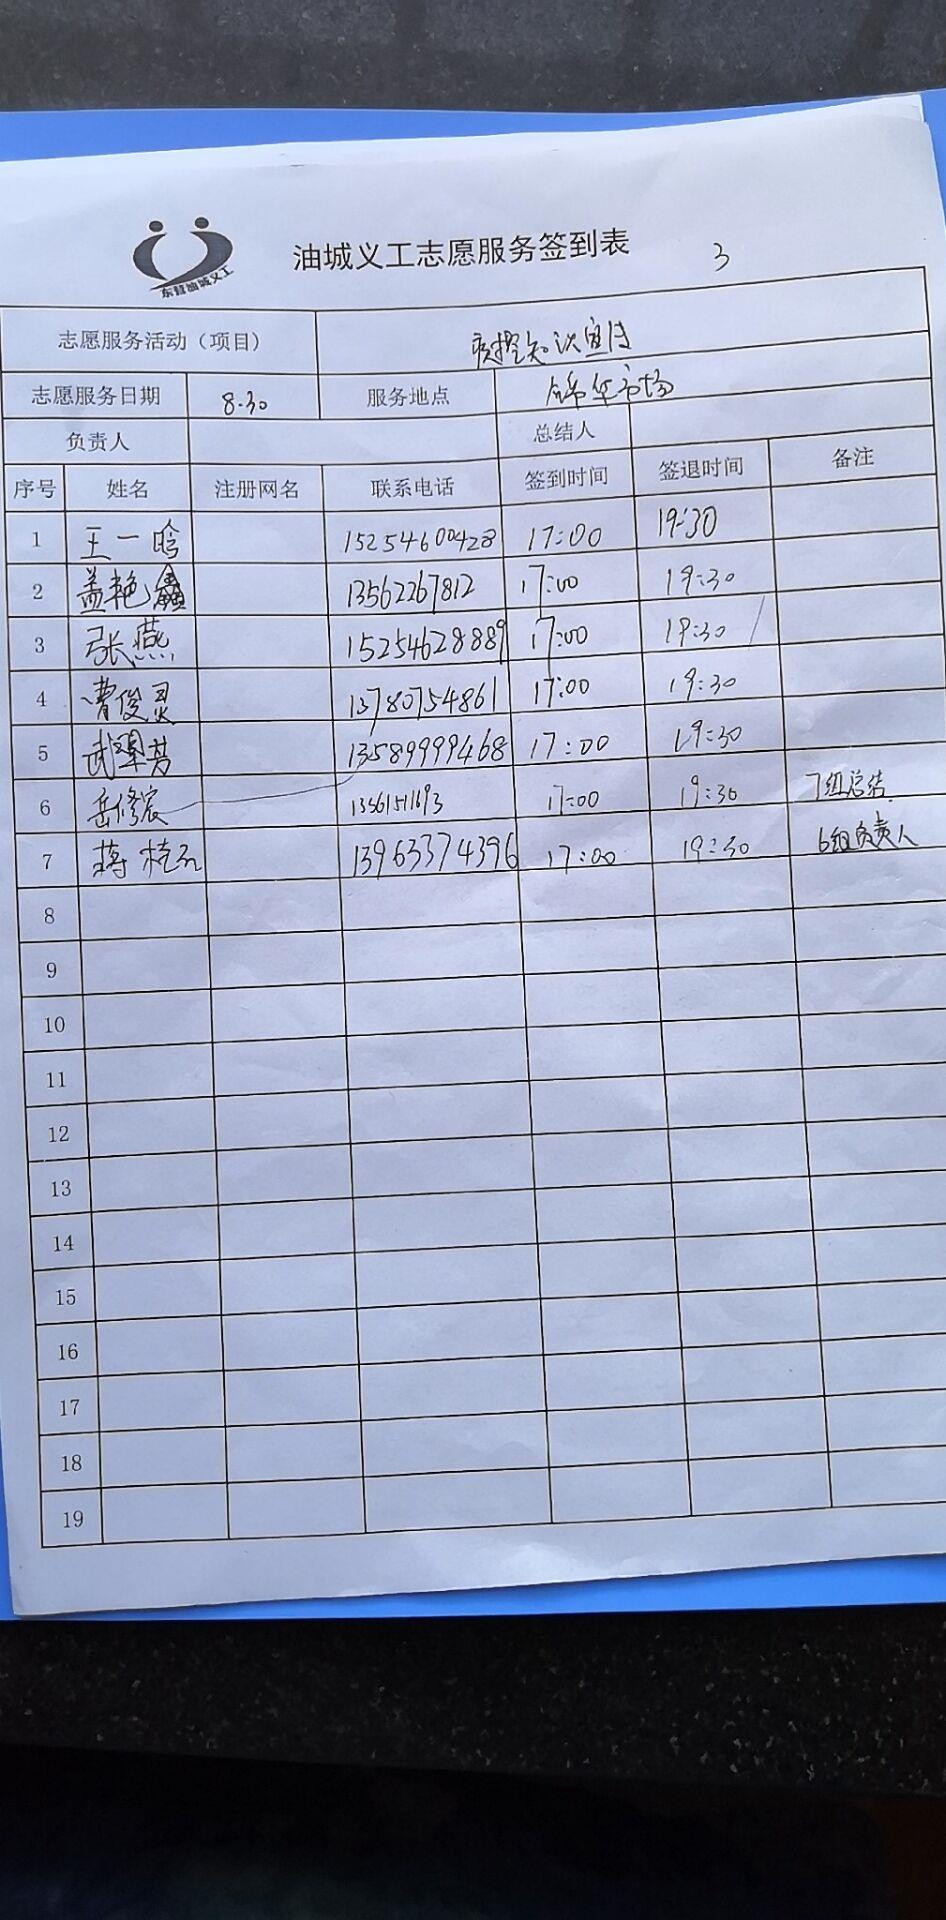 东营油城义工
油城义工志愿服务签到表 3
志愿服务活动（项目） 疾控知识宣传
志愿服务日期 8.30 服务地点 锦华市场
负责人 总结人
序号 姓名 注册网名 联系电话 签到时间 签退时间 备注
1 王一晗 15254600428 17:00 19:30
2 盖艳鑫 13562267812 17:00 19:30
3 张燕 15254628889 17:00 19:30
4 曹俊灵 13780754861 17:00 19:30
5 武翠芳 13589999468 17:00 19:30
6 岳修宸 13561511693 17:00 19:30 7组总结
7 蒋 13963374396 17:00 19:30 6组负责人
8
9
10
11
12
13
14
15
16
17
18
19